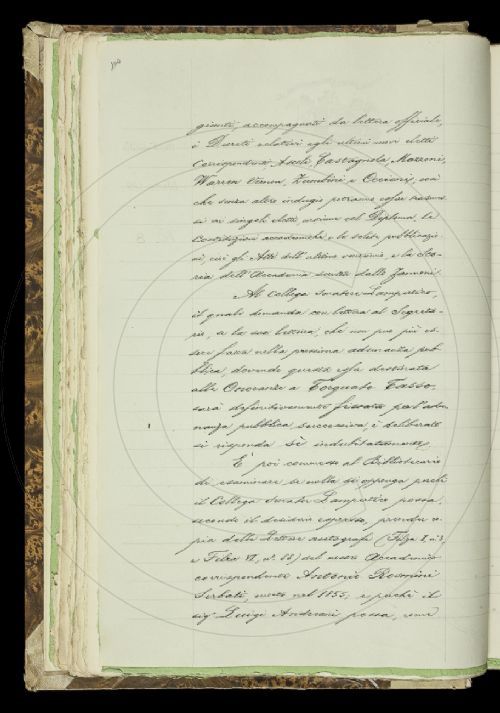 giunti, accompagnati da lettera officiale,
i Decreti relativi agli ultimi nove eletti
Corrispondenti Ascoli, Castagnola, Mazzoni,
Warren Vernon, Zumbini e Occioni, così
che senza altro indugio potranno esser trasmes-
si ai singoli eletti, insieme col Diploma, le
Costituzioni accademiche e le solite pubblicazio-
ni, cioè gli Atti dell'ultimo ventennio e la Sto-
ria dell'Accademia scritta dallo Zannoni.
Al Collega Senatore Lampertico,
il quale dimanda con lettera al Segreta-
rio, se la sua lettura, che non può più es-
sere fatta nella prossima adunanza pub-
blica, dovendo questa esser destinata
alle Onoranze a Torquato Tasso,
sarà definitivamente fissata per l'adu-
nanza pubblica successiva, è deliberato
si risponda sì indubitatamente.
È poi commesso al Bibliotecario
di esaminare se nulla si opponga perchè
il Collega Senator Lampertico possa,
secondo il desiderio espresso, prender co-
pia delle Lettere autografe (Filza I, n. 3,
e Filza VI, n.° 88) del nostro Accademico
corrispondente Antonio Rosmini
Serbati, morto nel 1855, e perchè il
sig. Luigi Andreani possa, come